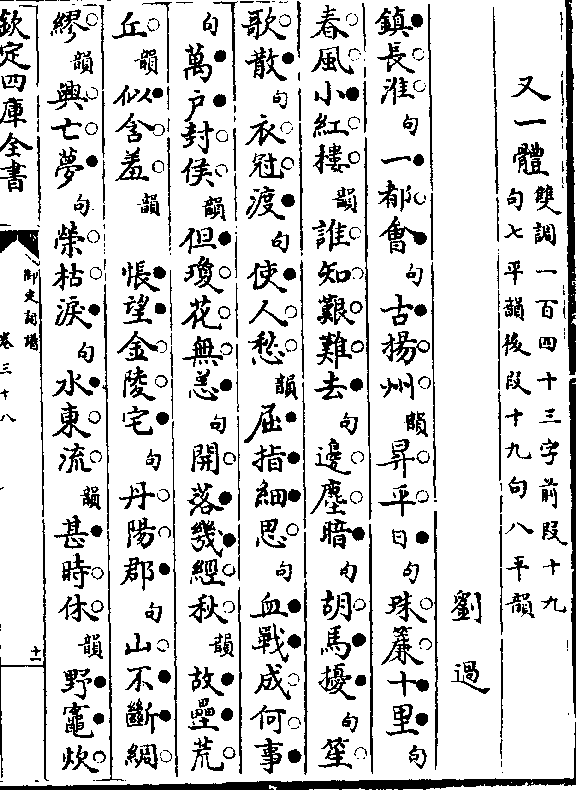 又一體
雙調一百四十三字前段十九
句七平韻後段十九句八平韻
劉過
鎮長淮句一都會句古揚州韻昇平日句珠簾十里句
春風小紅樓韻誰知艱難去句邊塵暗句胡馬擾句笙
歌散句衣冠渡句使人愁韻屈指細思句血戰成何事
句萬戸封侯韻但瓊花無恙句開落幾經秋韻故壘荒
丘韻似含羞韻 悵望金陵宅句丹陽郡句山不斷綢
繆韻興亡夢句榮枯淚句水東流韻甚時休韻野竈炊
欽定四庫全書
御定詞譜
卷三十八